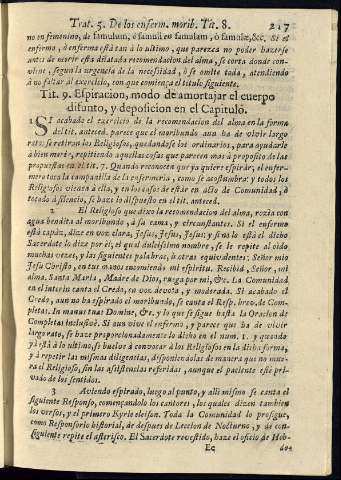 Trat. 5. De los enferm. morib. Tit. 8. 217
no en femenino, de famulum, ò famulā eo famulam, ò famulæ, &c. Si el
enfermo, ò enferma està tan à lo ultimo, que parezca no poder hazerse
antes de morir esta dilatada recomendacion del alma, se corta donde con-
viene, segun la urgencia de la necessidad, ò se omite toda, atendiendo
à no faltar al exercicio, con que comiença el titulo siguiente.
Tit. 9. Espiracion, modo de amortajar el cuerpo
difunto, y deposicion en el Capitulo.
1 SI acabado el exercicio de la recomendacion del alma en la forma
del tit. anteced. parece que el moribundo aun ha de vivir largo
rato; se retiran los Religiosos, quedandose los ordinarios, para ayudarle
à bien morir, repitiendo aquellas cosas que parecen mas à proposito de las
propuestas en el tit. 7. Quando reconocen que ya quiere espirar, el enfer-
mero toca la campanilla de la enfermeria, como se acostumbra: y todos los
Religiosos vienen à ella, y en los casos de estàr en acto de Comunidad, ò
tocado à silencio, se haze lo dispuesto en el tit. anteced.
2 El Religioso que dixo la recomendacion del alma, rozia con
agua bendita al moribundo, à su cama, y circunstantes. Si el enfermo
està capàz, dize en voz clara, Jesus, Jesus, Jesus: y si no lo està el dicho
Sacerdote lo dize por èl, el qual dulcissimo nombre, se le repite al oìdo
muchas vezes, y las siguientes palabras, ù otras equivalentes: Señor mio
Jesu Christo, en tus manos encomiendo mi espiritu. Recibid, Señor, mi
alma. Santa Maria, Madre de Dios, ruega por mi, &c. La Comunidad
en el interin canta el Credo, en voz devota, y moderada. Si acabado el
Credo, aun no ha espirado el moribundo, se canta el Resp. breve, de Com-
pletas. In manus tuas Domine, &c. y lo que se sigue hasta la Oracion de
Completas inclusivè. Si aun vive el enfermo, y parece que ha de vivir
largo rato, se haze proporcionadamente lo dicho en el num. 1. y quando
yà està à lo ultimo, se buelve à convocar à los Religiosos en la dicha forma,
y à repetir las mismas diligencias, disponiendolas de manera que no mue-
ra el Religioso, sin las assistencias referidas, aunque el paciente estè pri-
vado de los sentidos.
3 Aviendo espirado, luego al punto, y alli mismo se canta el
siguiente Responso, començandolo los cantores, los quales dizen tambien
los versos, y el primero Kyrie eleison. Toda la Comunidad lo prosigue,
como Responsorio historial, de despues de Leccion de Nocturno, y de con-
siguiente repite el asterisco. El Sacerdote revestido, haze el oficio de Heb-
Ee do-